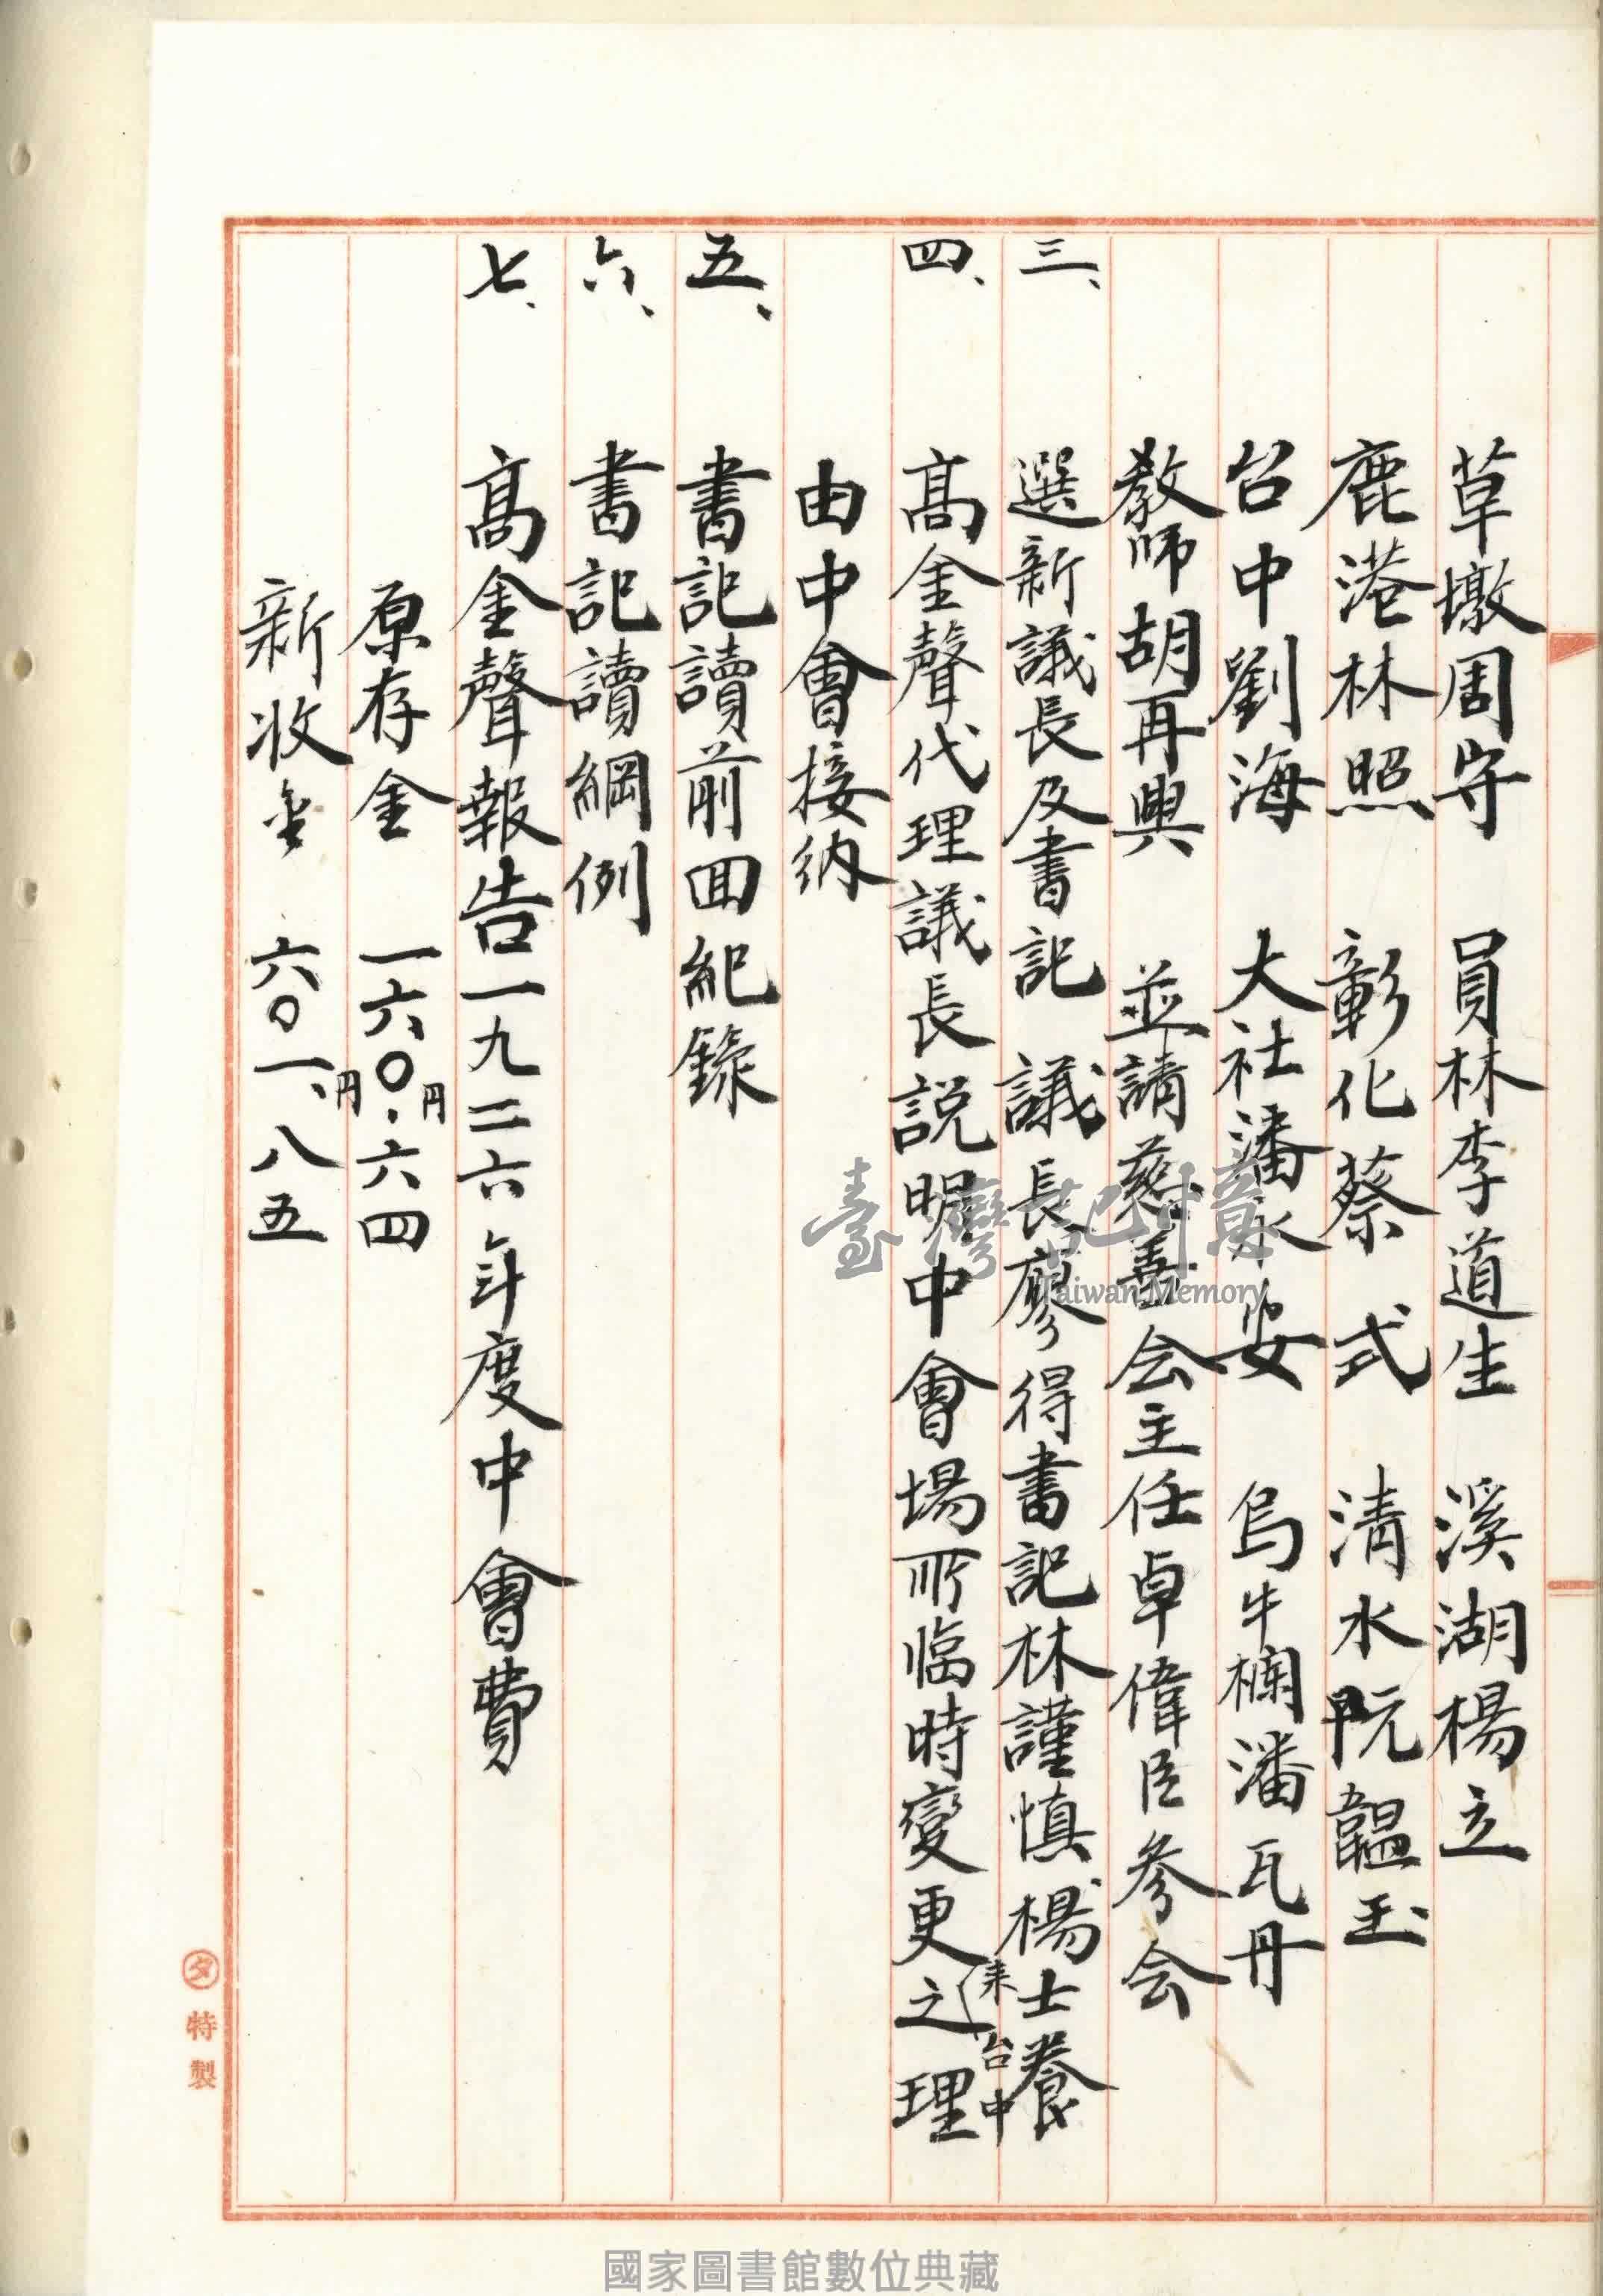 草墩周守　員林李道生　溪湖楊立
鹿港林照　彰化蔡式　清水阮韞玉
台中劉海　大社潘永安　烏牛欄潘瓦丹
教師胡再興　並請慈善会主任卓偉臣参会
三、選新議長及書記　議長廖得書記林謹慎楊士養
四、高金聲代理議長説明中會場所臨時變更來台中之理
由中會接納
五、書記讀前囬紀錄
六、書記讀綱例
七、高金聲報告一九二六年度中會費
原存金　一六〇円.六四
新收金　六〇一円、八五
タ特製
臺灣記憶
Taiwan Memory
國家圖書館數位典藏